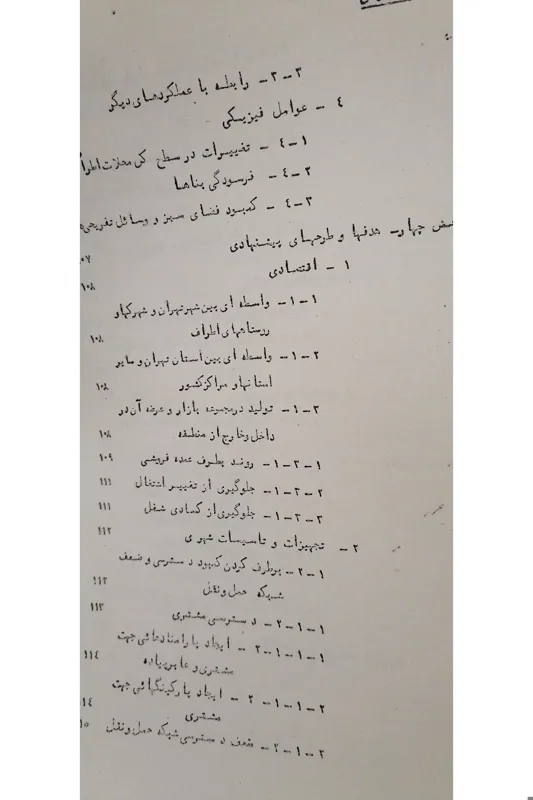 ۳-۳- رابطه با عملکردهای دیگر
۴ - عوامل فیزیکی
۴-۱ - تغییرات در سطح کل محلات
۴-۲ - فرسودگی بناها
۴-۳ - کمبود فضای سبز و وسائل تفریحی
چهار- هدفها و طرحهای پیشنهادی
۱ - اقتصادی ۱۰۸
۱-۱- واسطه ای بین شهر تهران و شهرکها و
روستاهای اطراف ۱۰۸
۱-۲- واسطه ای بین استان تهران و سایر
استانها و مراکز کشور ۱۰۸
۱-۳- تولید در مجموعه بازار و عرضه آن در
داخل و خارج از منطقه ۱۰۸
۱-۳-۱- روند بطرف عمده فروشی ۱۰۹
۱-۳-۲- جلوگیری از تغییر اشتغال ۱۱۱
۱-۳-۳- جلوگیری از کسادی شغل ۱۱۱
۲ - تجهیزات و تاسیسات شهری ۱۱۲
۲-۱- برطرف کردن کمبود دسترسی و ضعف
شبکه حمل و نقل ۱۱۳
۲-۱-۱- دسترسی مشتری ۱۱۳
۲-۱-۱-۱- ایجاد جهت
مشتری و عابر پیاده ۱۱۴
۲-۱-۱-۲- ایجاد پارکینگهائی جهت
مشتری
۲-۱-۲- ضعف دسترسی شبکه حمل و نقل